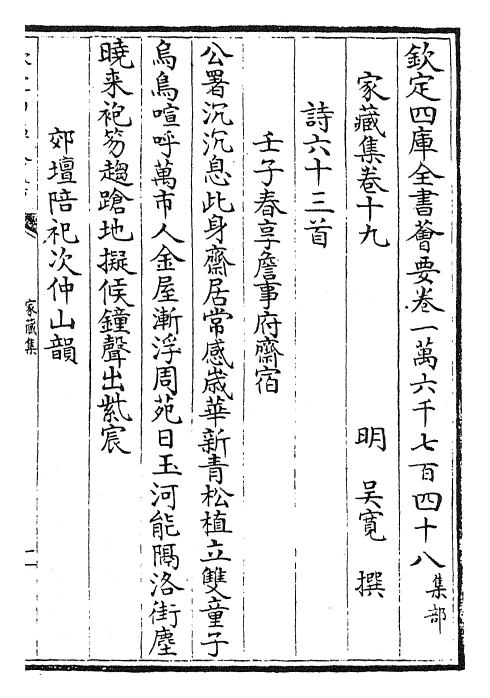 欽定四庫全書薈要卷一萬六千七百四十八集部
家藏集卷十九
明 吳寬 撰
詩六十三首
壬子春享詹事府齋宿
公署沉沉息此身齋居常感歳華新青松植立雙童子
烏烏喧呼萬市人金屋漸浮周苑日玉河能隔洛街塵
曉来袍笏趨蹌地擬候鐘聲出紫宸
郊壇陪祀次仲山韻
家藏集